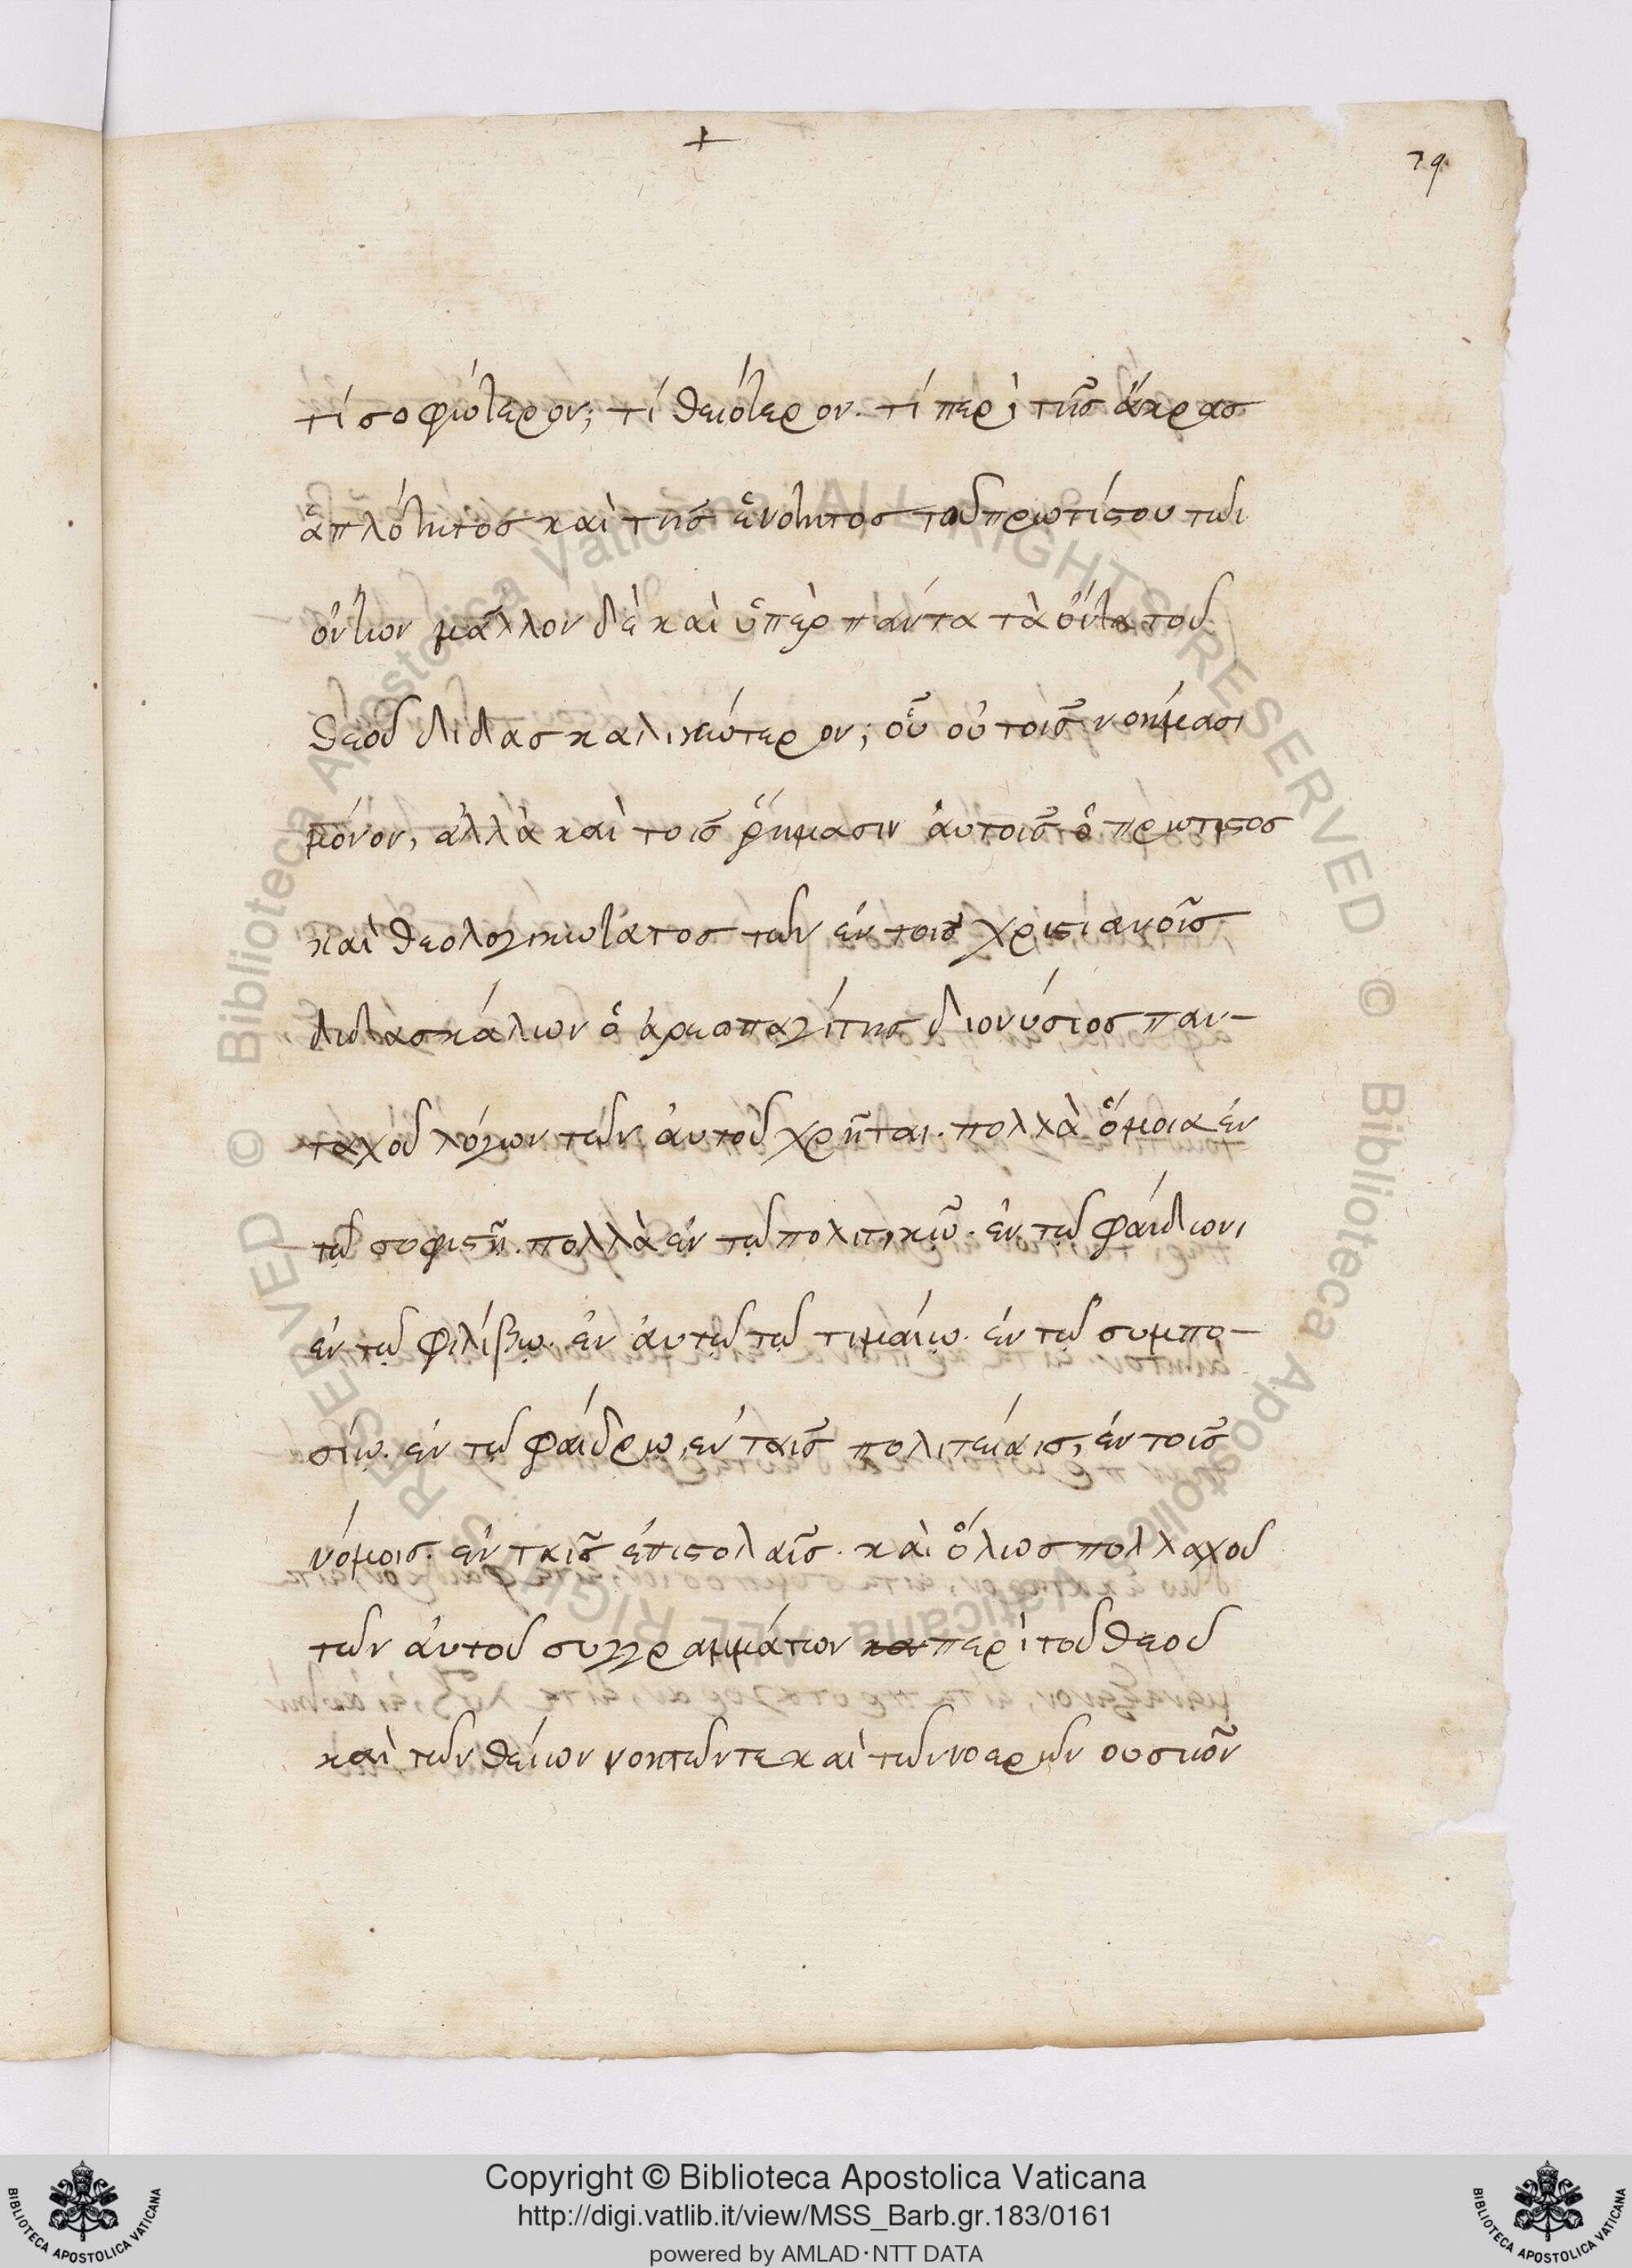 +
79
τί σοφώτερον; τί θειότερον. τί περὶ τῆς ἄκρας
ἁπλότητος καὶ τῆς ἑνότητος τοῦ πρωτίστου τῶν
ὄντων μᾶλλον δὲ καὶ ὑπὲρ πάντα τὰ ὄντα τοῦ
θεοῦ διδασκαλικώτερον; οὗ οὐ τοῖς νοήμασι
μόνον, ἀλλὰ καὶ τοῖς ῥήμασιν αὐτοῖς ὁ πρώτιστος
καὶ θεολογικώτατος τῶν ἐν τοῖς χριστιανοῖς
διδασκάλων ὁ ἀρεοπαγίτης διονύσιος παν-
ταχοῦ λόγων τῶν αὐτοῦ χρῆται. πολλὰ ὅμοια ἐν
τῷ σοφιστῇ. πολλὰ ἐν τῷ πολιτικῷ. ἐν τῷ φαίδωνι
ἐν τῷ φιλίβῳ. ἐν αὐτῷ τῷ τιμαίῳ. ἐν τῷ συμπο-
σίῳ. ἐν τῷ φαίδρῳ, ἐν ταῖς πολιτείαις, ἐν τοῖς
νόμοις. ἐν ταῖς ἐπιστολαῖς. καὶ ὅλως πολλαχοῦ
τῶν αὐτοῦ συγγραμμάτων περὶ τοῦ θεοῦ
καὶ τῶν θείων νοητῶν τε καὶ τῶν νοερῶν οὐσιῶν
Copyright © Biblioteca Apostolica Vaticana
http://digi.vatlib.it/view/MSS_Barb.gr.183/0161
powered by AMLAD·NTT DATA
BIBLIOTECA APOSTOLICA VATICANA
BIBLIOTECA APOSTOLICA VATICANA
© Biblioteca Apostolica Vaticana ALL RIGHTS RESERVED
© Biblioteca Apostolica Vaticana ALL RIGHTS RESERVED